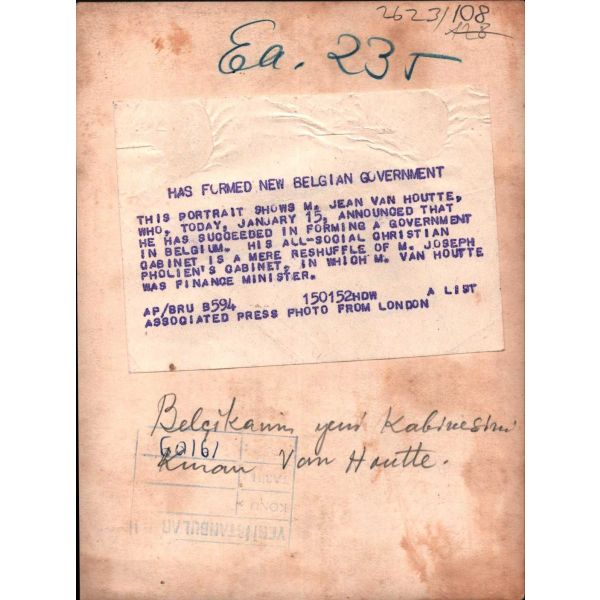 2623/108
128
Ea. 235
HAS FORMED NEW BELGIAN GOVERNMENT
THIS PORTRAIT SHOWS M. JEAN VAN HOUTTE,
WHO, TODAY, JANUARY 15, ANNOUNCED THAT
HE HAS SUCCEEDED IN FORMING A GOVERNMENT
IN BELGIUM. HIS ALL-SOCIAL CHRISTIAN
CABINET IS A MERE RESHUFFLE OF M. JOSEPH
PHOLIEN'S CABINET, IN WHICH M. VAN HOUTTE
WAS FINANCE MINISTER.
AP/BRU B594 150152HDW A LIST
ASSOCIATED PRESS PHOTO FROM LONDON
Belçikanın yeni Kabinesini
Kuran Van Houtte.
60161
TARİH
KONU
YENİ İSTANBUL